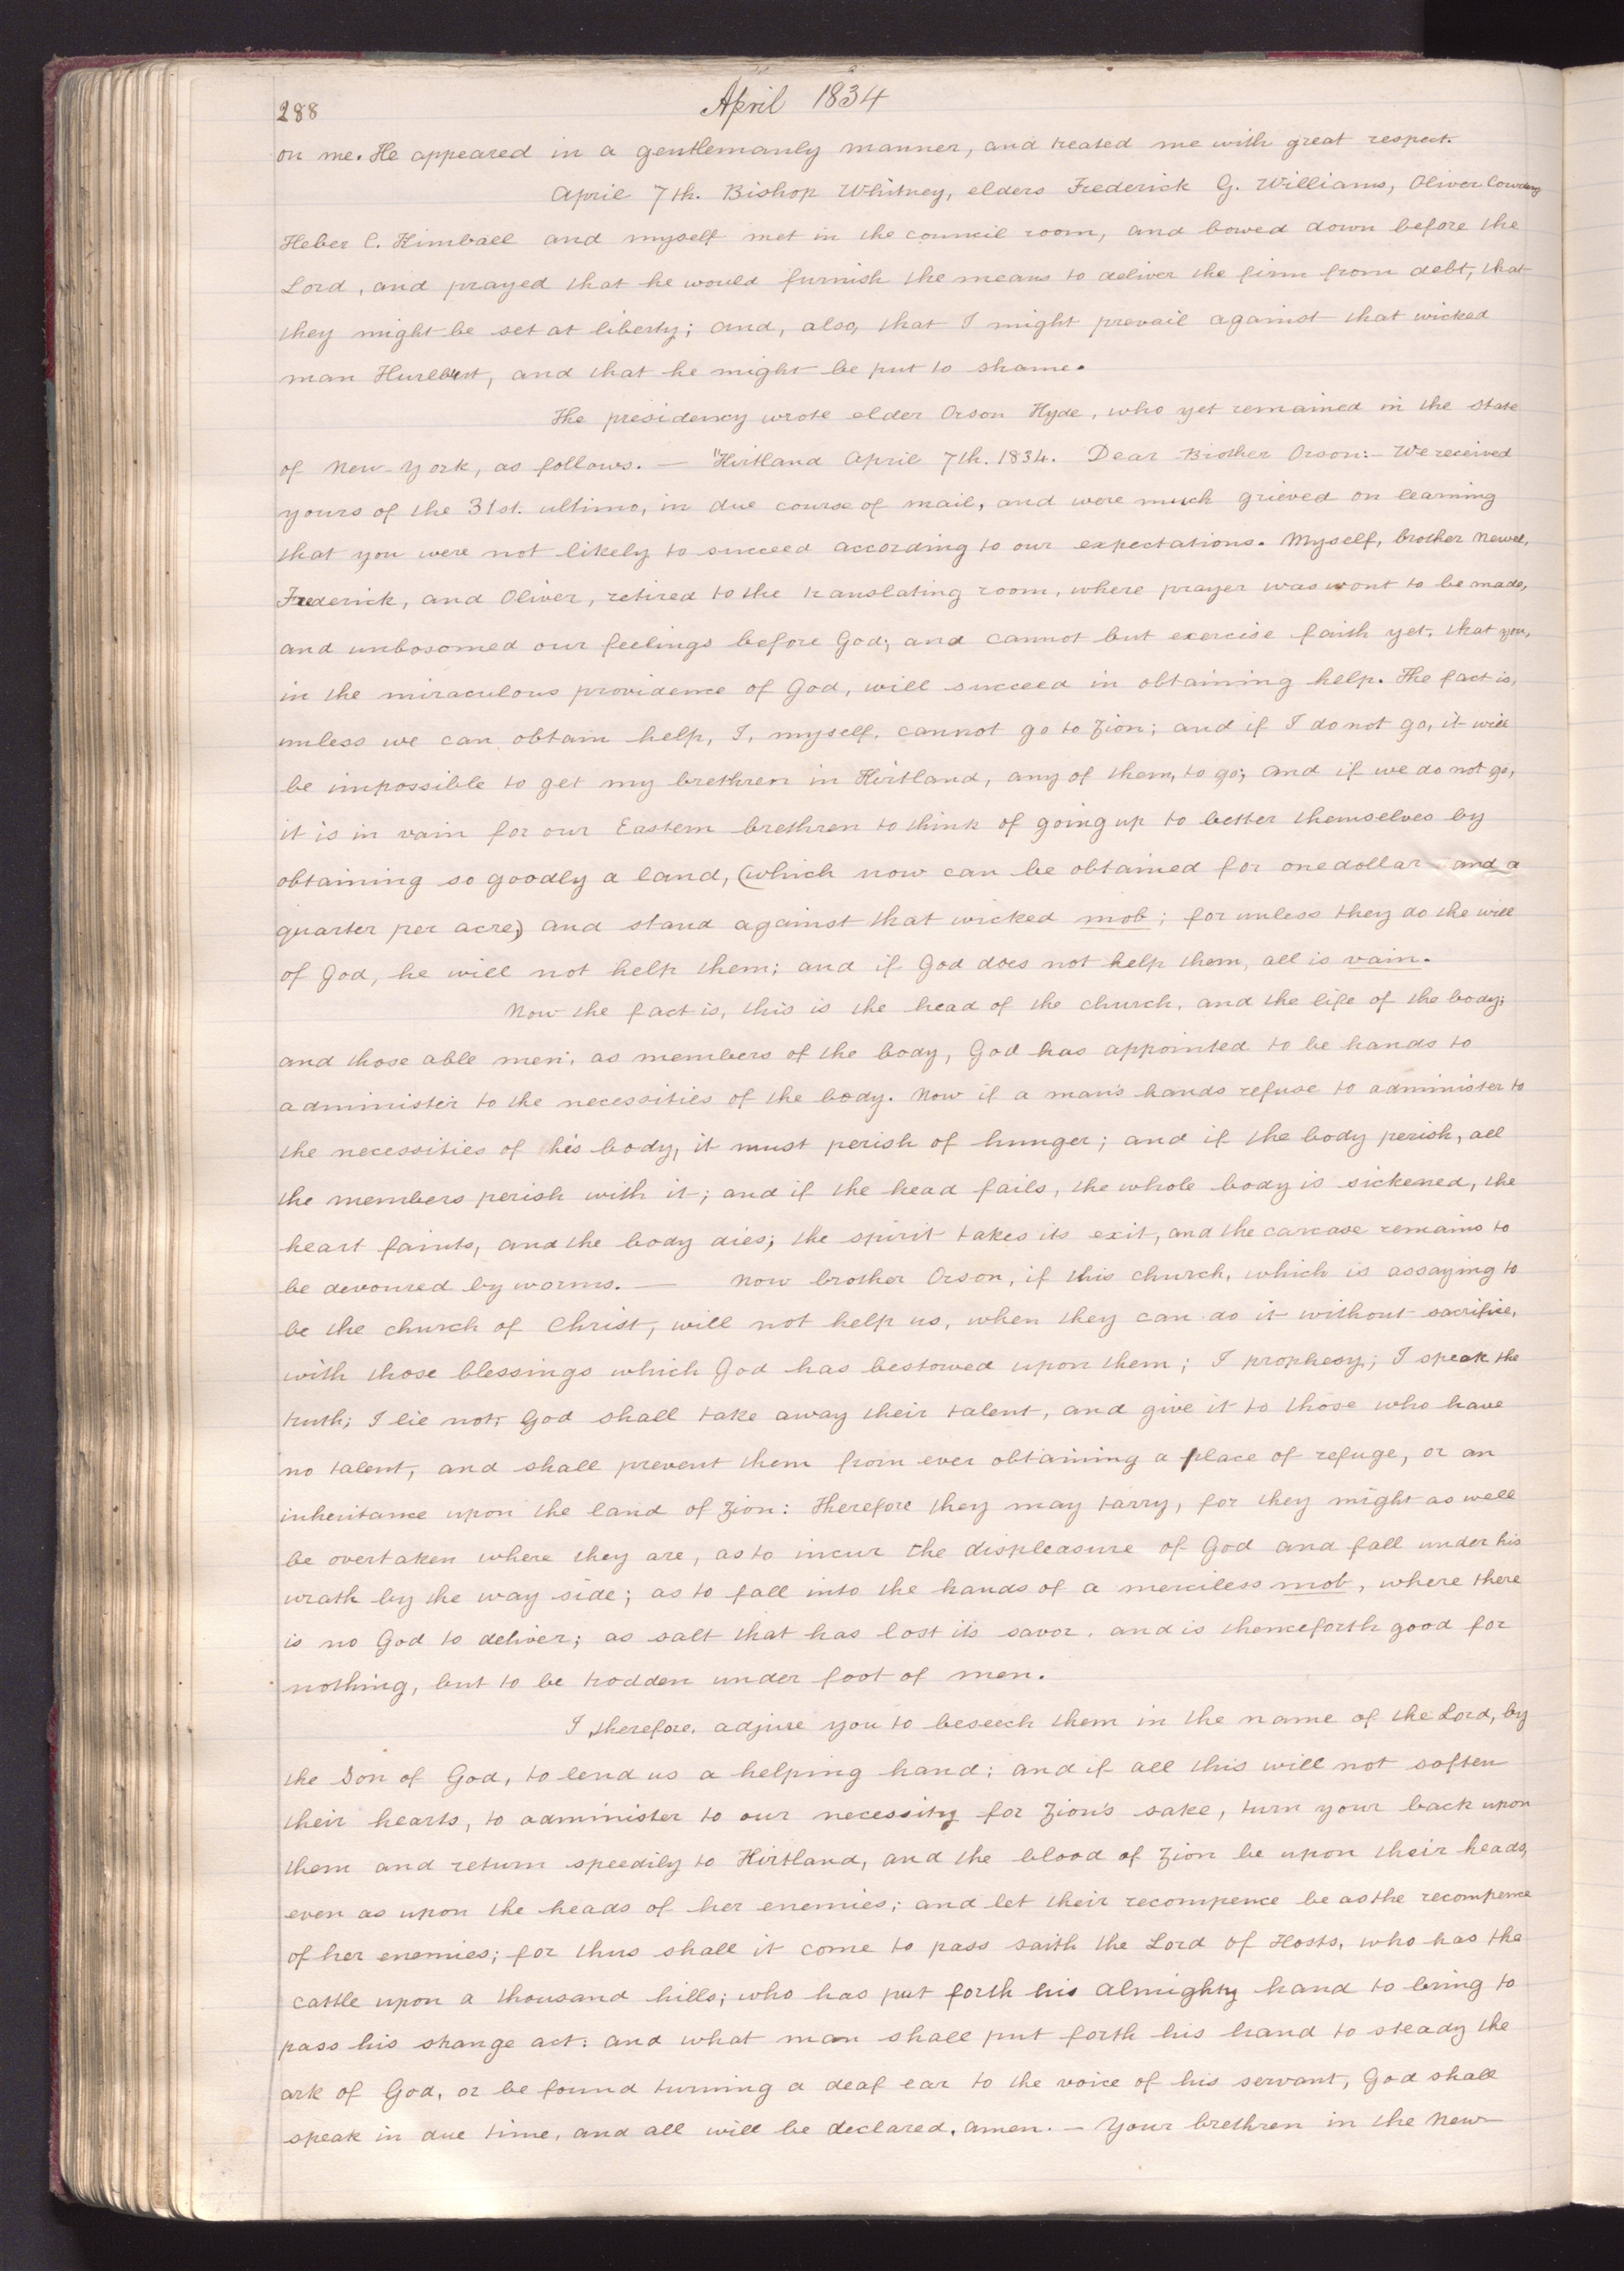 288
April 1834
on me. He appeared in a gentlemanly manner, and treated me with great respect.
April 7th. Bishop Whitney, elders Frederick G. Williams, Oliver Cowdery
Heber C. Kimball and myself met in the council room, and bowed down before the
Lord, and prayed that he would furnish the means to deliver the firm from debt, that
they might be set at liberty; and, also, that I might prevail against that wicked
man Hurlburt, and that he might be put to shame.
The presidency wrote elder Orson Hyde, who yet remained in the state
of New-York, as follows. — "Kirtland April 7th. 1834. Dear Brother Orson:- We received
yours of the 31st. ultimo, in due course of mail, and were much grieved on learning
that you were not likely to succeed according to our expectations. Myself, brother Newel,
Frederick, and Oliver, retired to the translating room, where prayer was wont to be made,
and unbosomed our feelings before God; and cannot but exercise faith yet, that you,
in the miraculous providence of God, will succeed in obtaining help. The fact is,
unless we can obtain help, I, myself, cannot go to Zion; and if I do not go, it will
be impossible to get my brethren in Kirtland, any of them, to go; and if we do not go,
it is in vain for our Eastern brethren to think of going up to better themselves by
obtaining so goodly a land, (which now can be obtained for one dollar and a
quarter per acre,) and stand against that wicked mob; for unless they do the will
of God, he will not help them; and if God does not help them, all is vain.
Now the fact is, this is the head of the church, and the life of the body;
and those able men, as members of the body, God has appointed to be hands to
administer to the necessities of the body. Now if a man's hands refuse to administer to
the necessities of his body, it must perish of hunger; and if the body perish, all
the members perish with it; and if the head fails, the whole body is sickened, the
heart faints, and the body dies; the spirit takes its exit, and the carcase remains to
be devoured by worms. — Now brother Orson, if this church, which is assaying to
be the church of Christ, will not help us, when they can do it without sacrifice,
with those blessings which God has bestowed upon them; I prophesy; I speak the
truth; I lie not; God shall take away their talent, and give it to those who have
no talent, and shall prevent them from ever obtaining a place of refuge, or an
inheritance upon the land of Zion: Therefore they may tarry, for they might as well
be overtaken where they are, as to incur the displeasure of God and fall under his
wrath by the way side; as to fall into the hands of a merciless mob, where there
is no God to deliver; as salt that has lost its savor, and is thenceforth good for
nothing, but to be trodden under foot of men.
I, therefore, adjure you to beseech them in the name of the Lord, by
the Son of God, to lend us a helping hand; and if all this will not soften
their hearts, to administer to our necessity for Zion's sake, turn your back upon
them and return speedily to Kirtland, and the blood of Zion be upon their heads,
even as upon the heads of her enemies; and let their recompence be as the recompence
of her enemies; for thus shall it come to pass saith the Lord of Hosts, who has the
cattle upon a thousand hills; who has put forth his almighty hand to bring to
pass his strange act: and what man shall put forth his hand to steady the
ark of God, or be found turning a deaf ear to the voice of his servant, God shall
speak in due time, and all will be declared, amen. — Your brethren in the New